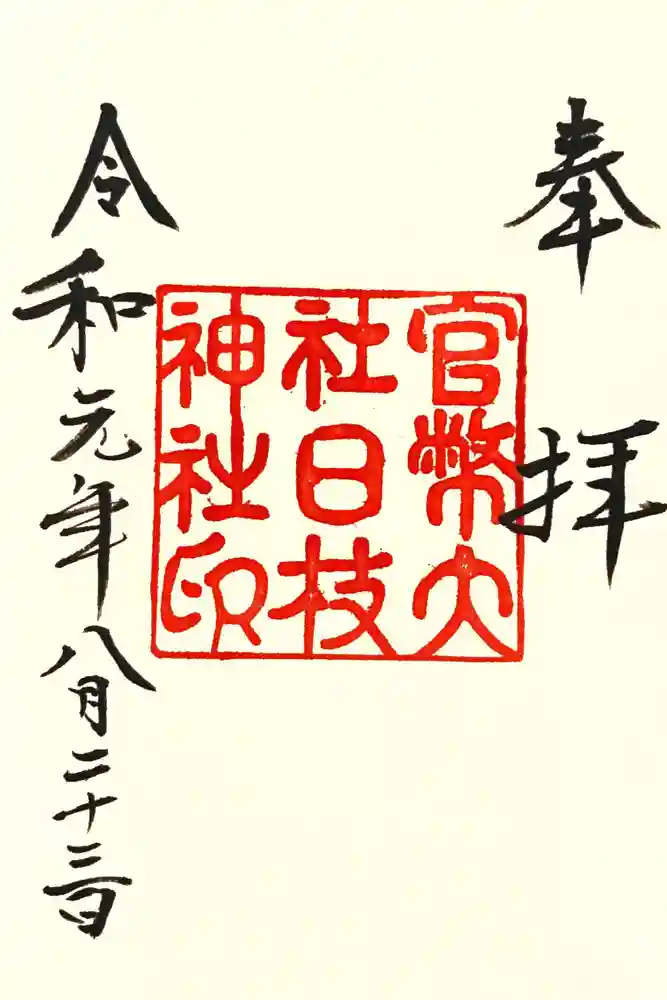 奉拝
官幣大
社日枝
神社印
令和元年八月二十三日